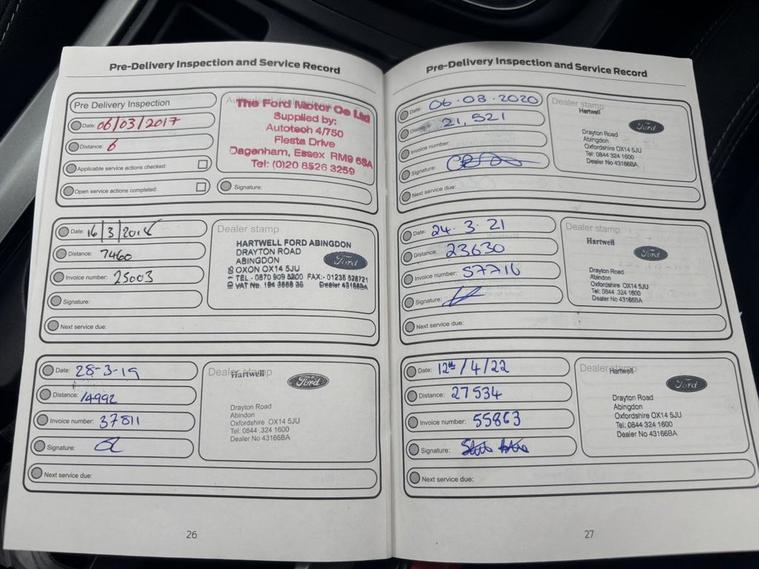 Pre-Delivery Inspection and Service Record
Pre Delivery Inspection
Date: 06/03/2017
Distance: 6
Applicable service actions checked:
Open service actions completed:
The Ford Motor Co Ltd
Supplied by:
Autotech 4/750
Fiesta Drive
Dagenham, Essex RM9 6SA
Tel: (0)20 8526 3259
Signature:
Date: 16/3/2018
Distance: 7460
Invoice number: 25003
Signature:
Next service due:
Dealer stamp
HARTWELL FORD ABINGDON
DRAYTON ROAD
ABINGDON
OXON OX14 5JU
TEL - 0870 909 5200 FAX:- 01235 528721
VAT No. 194 3888 36 Dealer 43166BA
Ford
Date: 28-3-19
Distance: 14992
Invoice number: 37811
Signature:
Next service due:
Dealer stamp
Hartwell
Ford
Drayton Road
Abindon
Oxfordshire OX14 5JU
Tel: 0844 324 1600
Dealer No 43166BA
26
Pre-Delivery Inspection and Service Record
Date: 06.08.2020
Distance: 21,521
Invoice number:
Signature:
Next service due:
Dealer stamp
Hartwell
Ford
Drayton Road
Abingdon
Oxfordshire OX14 5JU
Tel: 0844 324 1600
Dealer No 43166BA
Date: 24.3.21
Distance: 23630
Invoice number: 57716
Signature:
Next service due:
Dealer stamp
Hartwell
Ford
Drayton Road
Abingdon
Oxfordshire OX14 5JU
Tel: 0844 324 1600
Dealer No 43166BA
Date: 12th/4/22
Distance: 27534
Invoice number: 55863
Signature:
Next service due:
Dealer stamp
Hartwell
Ford
Drayton Road
Abingdon
Oxfordshire OX14 5JU
Tel: 0844 324 1600
Dealer No 43166BA
27